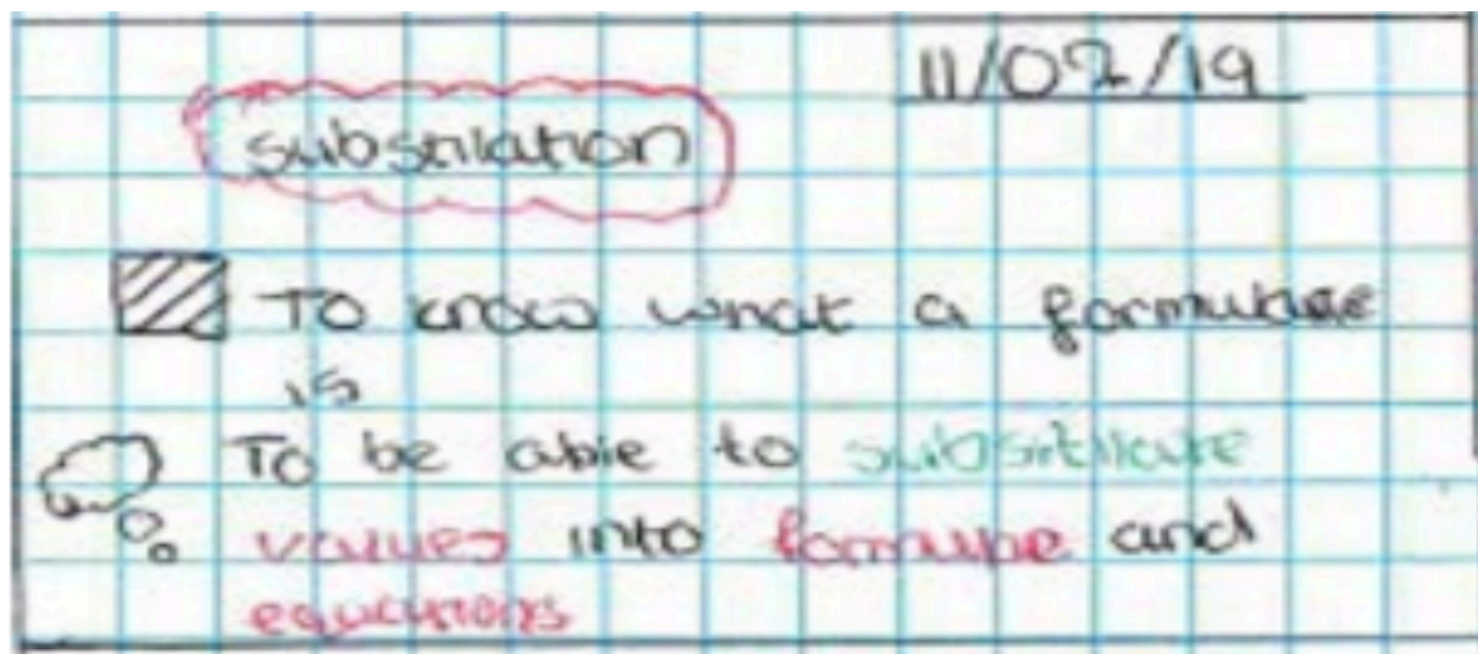 11/07/19
substilation
To know what a formulae
is
To be able to substilate
values into formulae and
equations